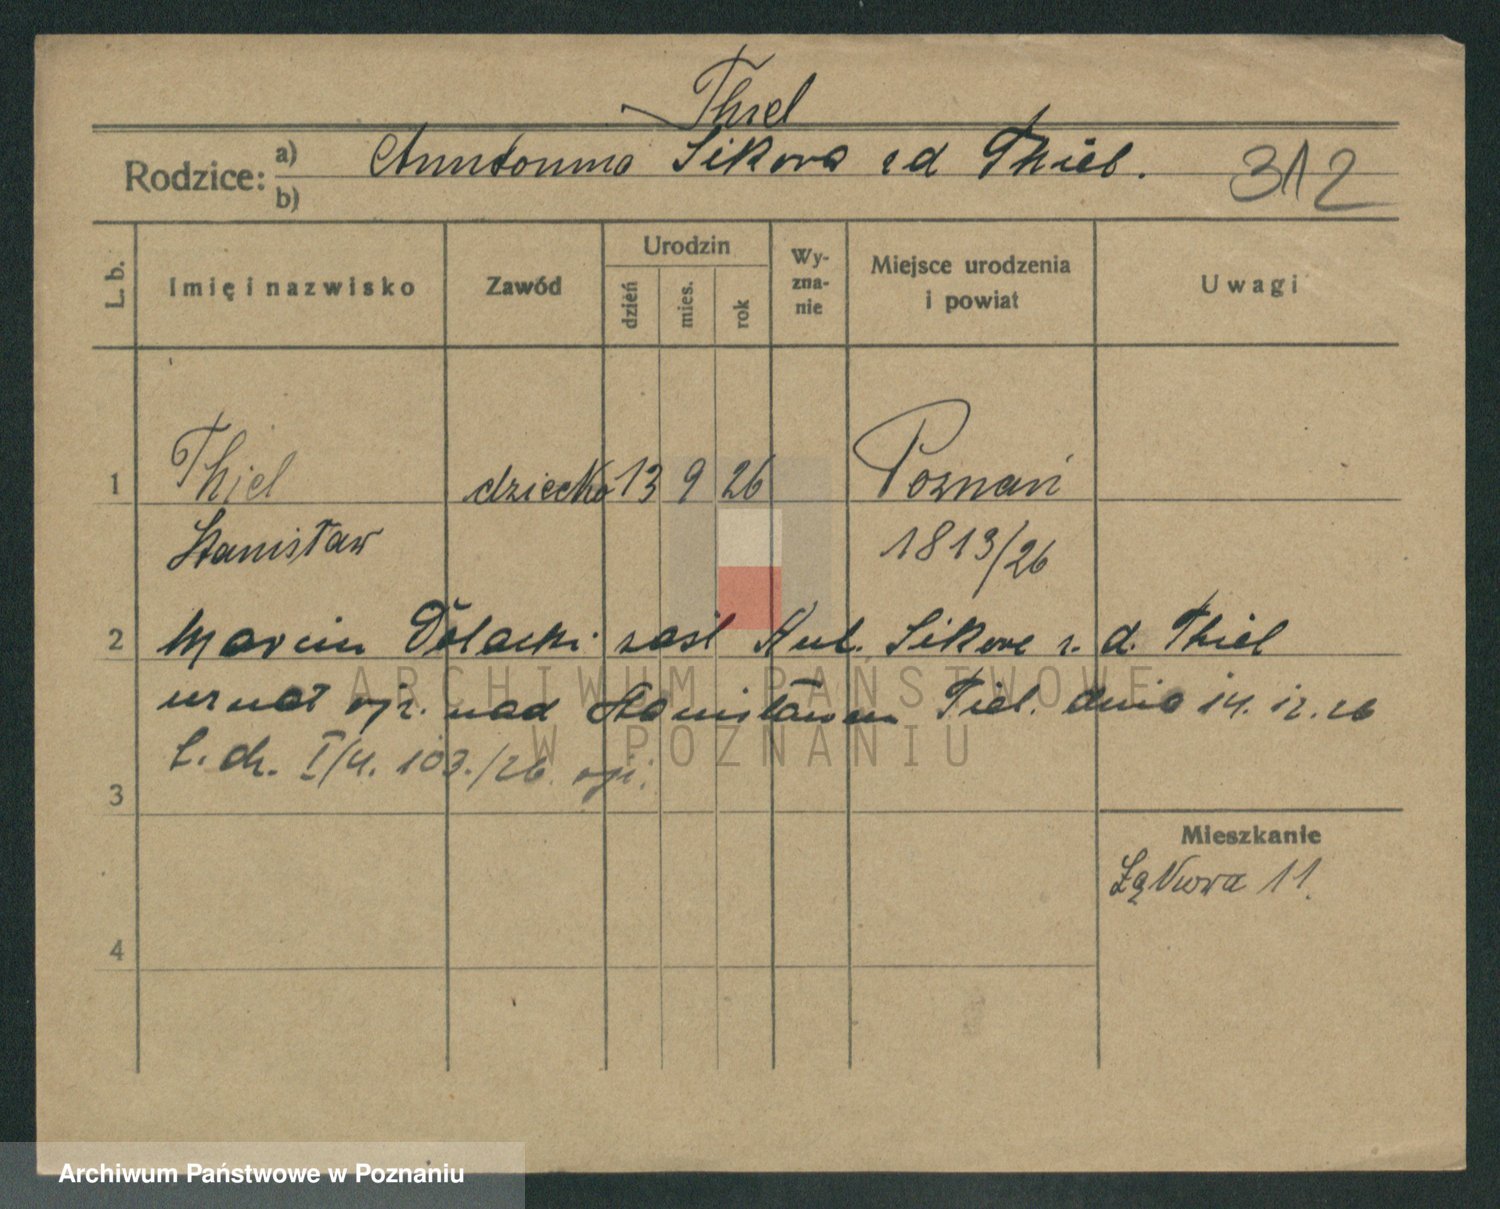 Thiel
Rodzice: a) Anntonina Sikora z d Thiel. 312
b)
L. b. Imię i nazwisko Zawód Urodzin dzień mies. rok Wyznanie Miejsce urodzenia i powiat Uwagi
1 Thiel dziecko 13 9 26 Poznań
Stanisław 1813/26
2 Marcin zaśl Sikorę z. d. Thiel
uznał ojc. nad Stanisławem Tiel. dnia 14. 12. 26
L. dz. I/4. 103./26. ojc.
3
Mieszkanie
Łąkowa 11.
4
ARCHIWUM PAŃSTWOWE
W POZNANIU
Archiwum Państwowe w Poznaniu